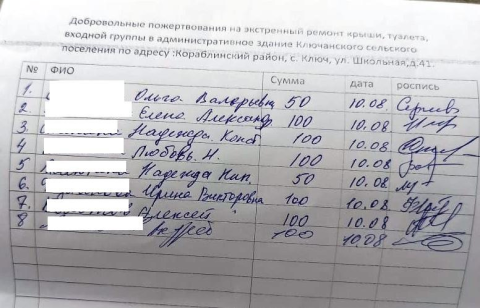 Добровольные пожертвования на экстренный ремонт крыши, туалета,
входной группы в административное здание Ключанского сельского
поселения по адресу :Кораблинский район, с. Ключ, ул. Школьная,д.41.
№ ФИО Сумма дата роспись
1. Ольга Валерьевн 50 10.08
2 Елена Александр 100 10.08
3. Надежда Конст 100 10.08
4 Любовь. Н. 100 10.08
5 Надежда 50 10.08
6. Ирина Викторовна 100 10.08
7. Алексей 100 10.08
8 100 10.08